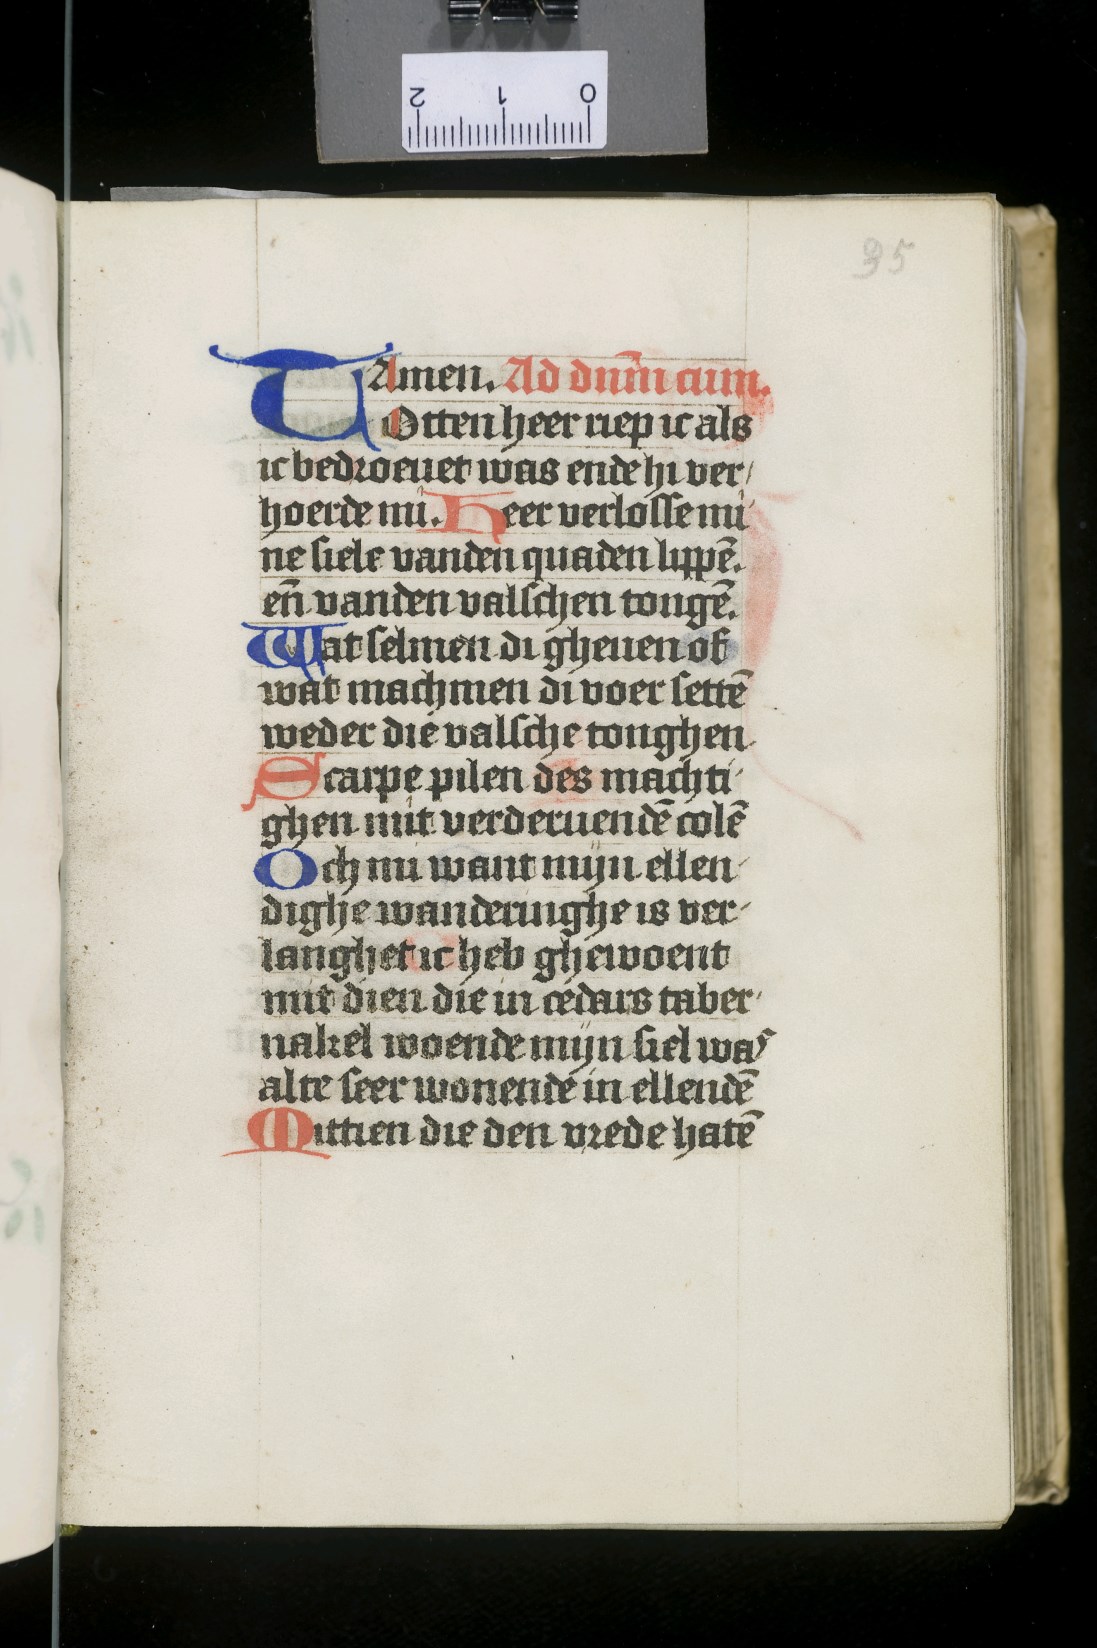 35
Amen. Ad dnm̄ cum.
TOtten heer riep ic als
ic bedroeuet was ende hi ver/
hoerde mi. Heer verlosse mi
ne siele vanden quaden lippē.
eñ vanden valschen tongē.
Wat selmen di gheuen of
wat machmen di voer settē
weder die valsche tonghen
Scarpe pilen des machti
ghen mit verderuendē colē
Och mi want mijn ellen
dighe wanderinghe is ver
langhet ic heb ghewoent
mit dien die in cedars taber
nakel woende mijn siel was
alte seer wonende in ellendē
Mittien die den vrede hatē
2 1 0